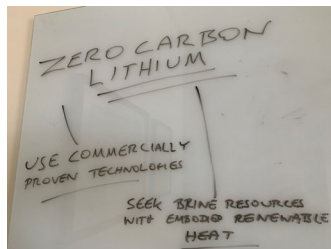 ZERO CARBON
LITHIUM
USE COMMERCIALLY
PROVEN TECHNOLOGIES
SEEK BRINE RESOURCES
WITH EMBODED RENEWABLE
HEAT